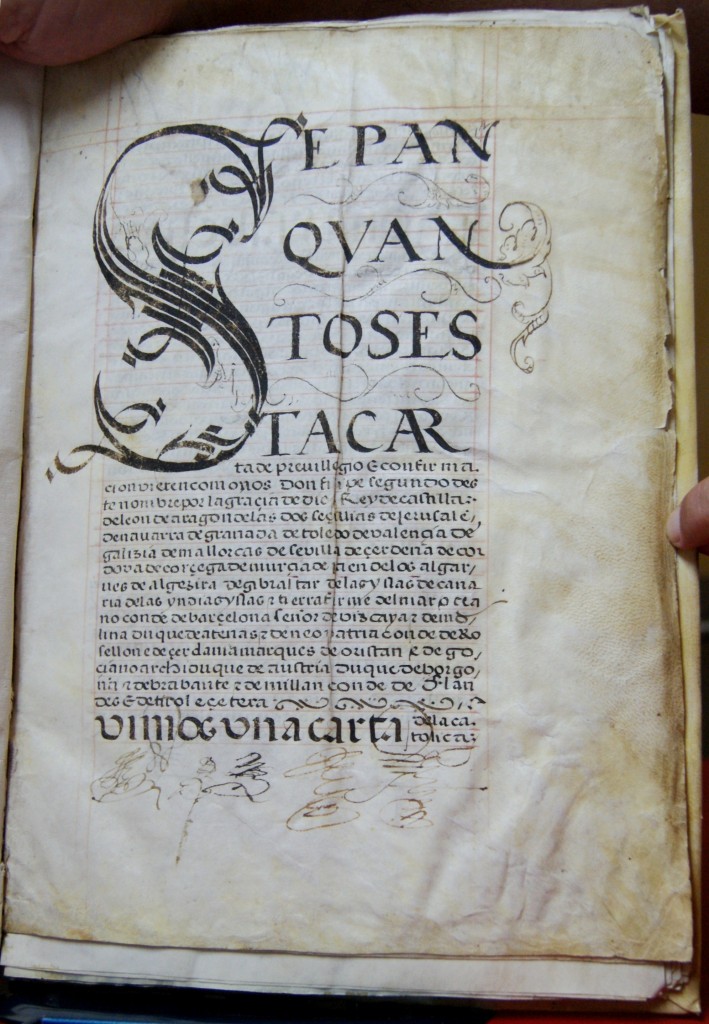 SEPAN
QVAN
TOSES
TACAR
ta de previllegio E confirma
cion vieren como nos Don felipe segundo des
te nombre por la gracia de dios Rey de castilla
de leon de aragon de las dos seçilias de Jerusalē
de navarra de granada de toledo de valençia de
galizia de mallorcas de sevilla de çerdeña de cor
dova de corçega de murçia de jaen de los algar
ves de algezira de gibraltar de las yslas de cana
ria de las yndias yslas z tierra firme del mar oçea
no conde de barçelona señor de vizcaya z de mo
lina duque de atenas z de neopatria conde de Ro
sellon e de çerdania marques de oristan E de go
ciano archiduque de austria duque de borgo
ña z de brabante z de millan conde de Flan
des E de tirol e çetera
vimos vna carta de la ca
tolica